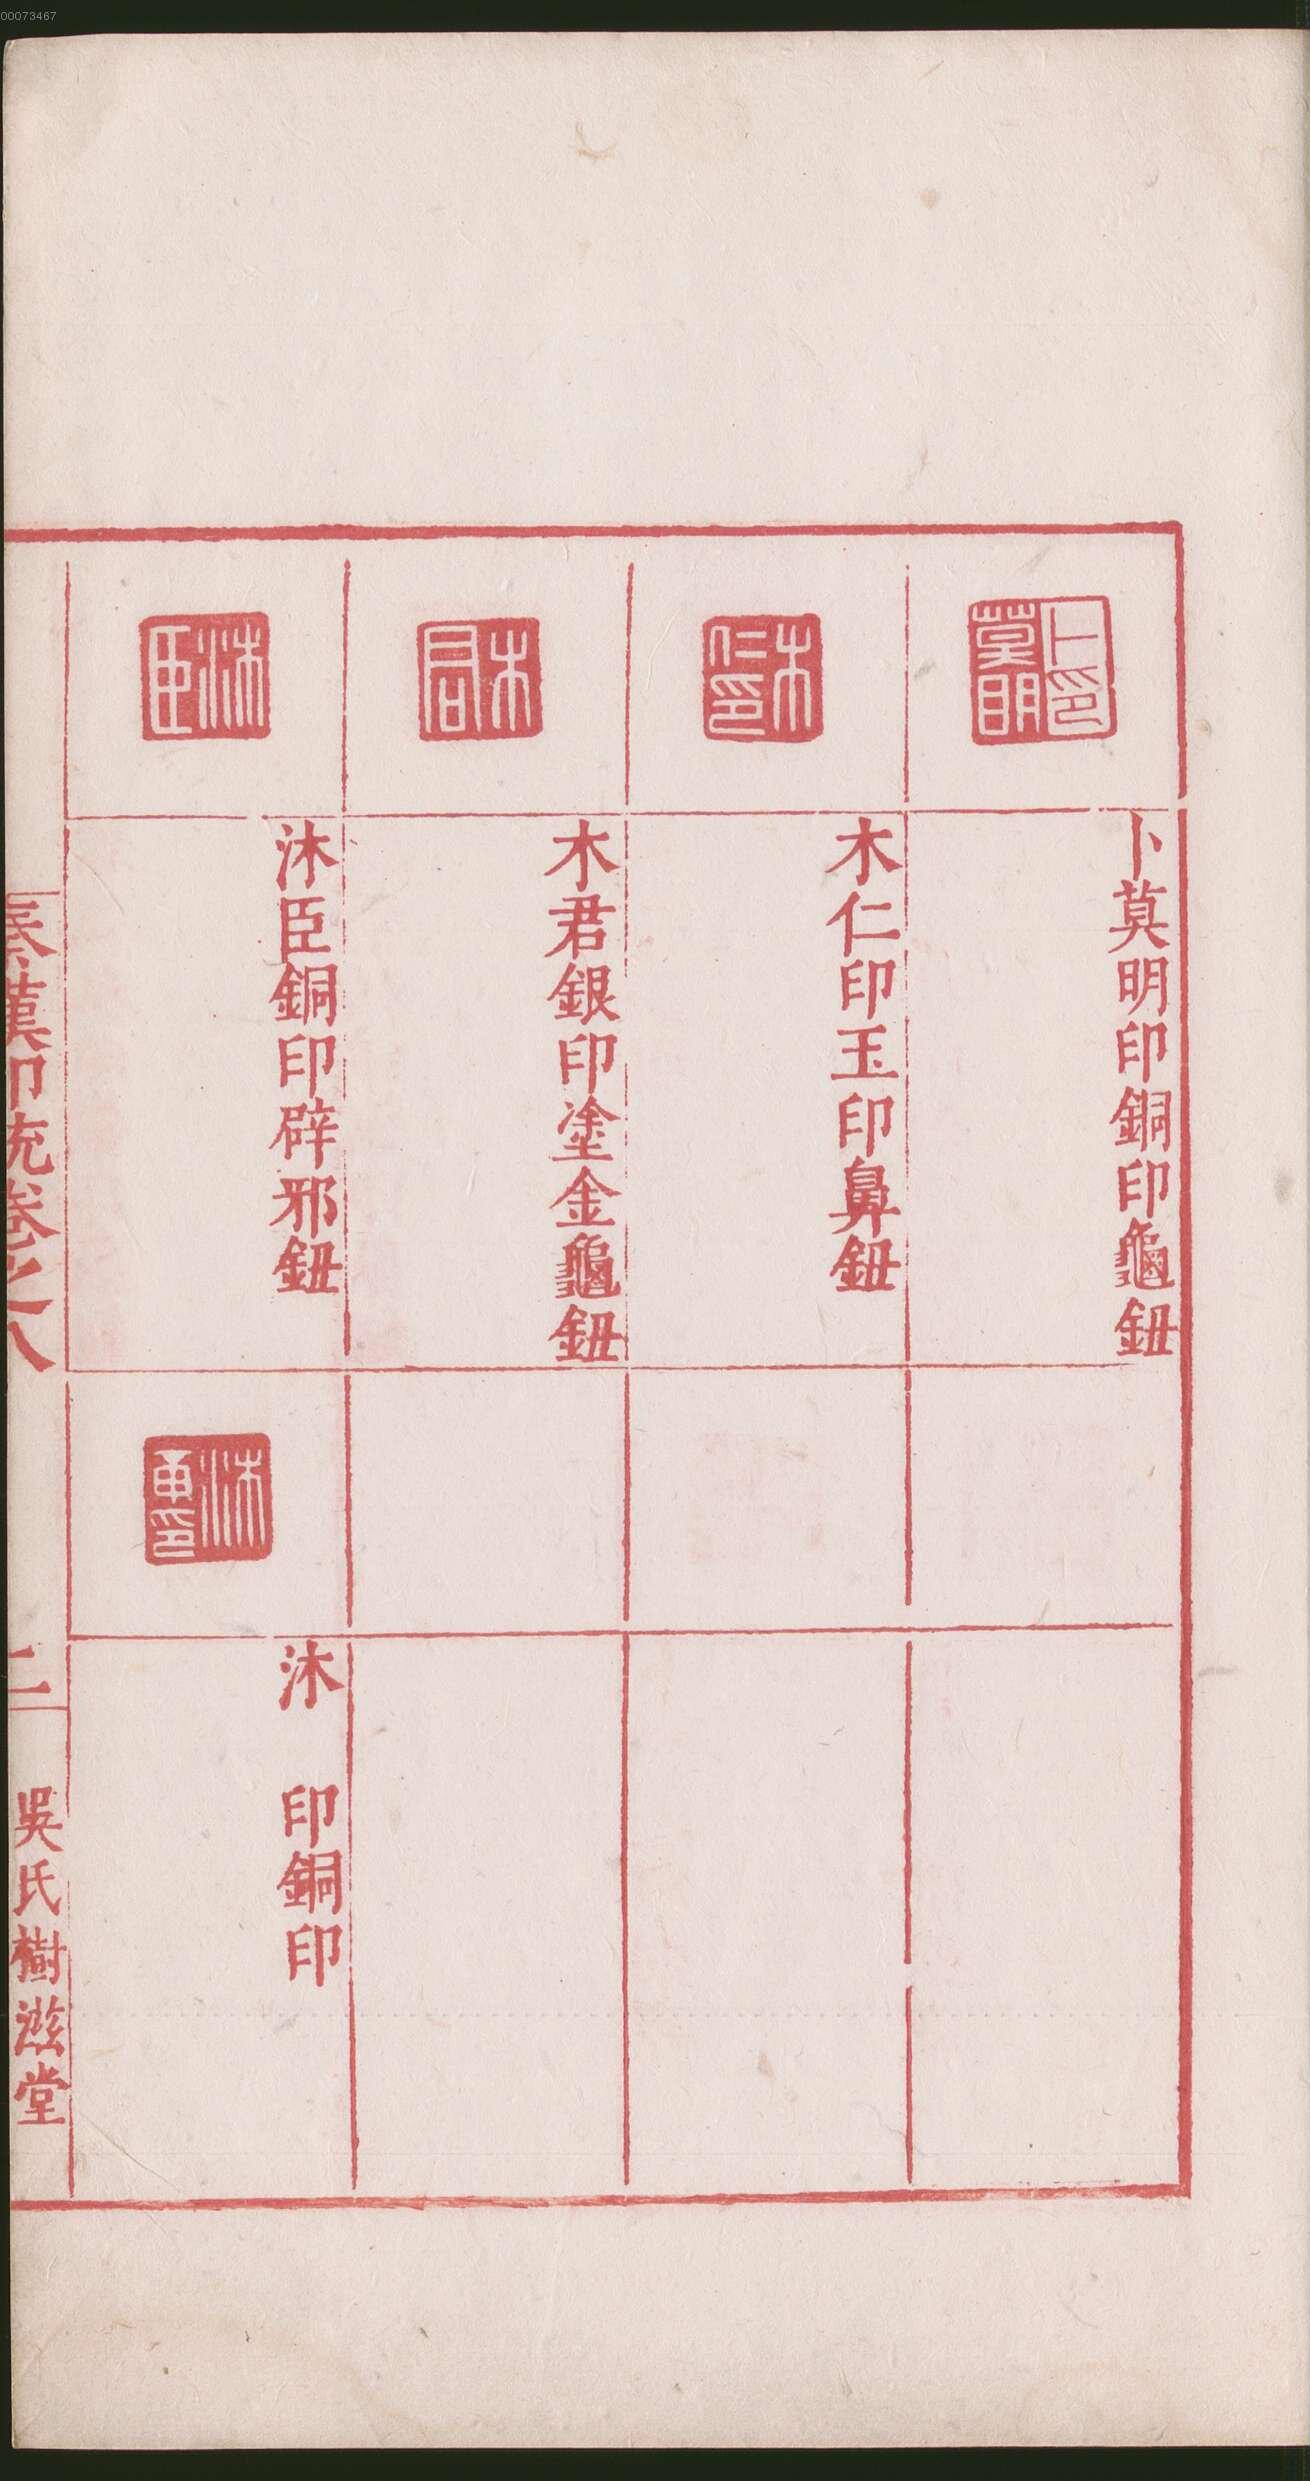 00073467
卜印莫明
卜莫明印銅印龜鈕
木仁印
木仁印玉印鼻鈕
木君
木君銀印塗金龜鈕
沐臣
沐臣銅印辟邪鈕
沐 印
沐 印銅印
秦漢印統卷之八
二
吳氏樹滋堂